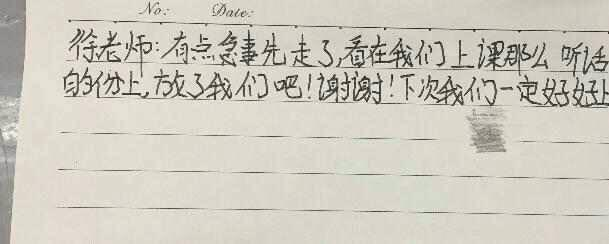 No: Date:
徐老师:有点急事先走了,看在我们上课那么听话
的份上,放了我们吧!谢谢!下次我们一定好好上